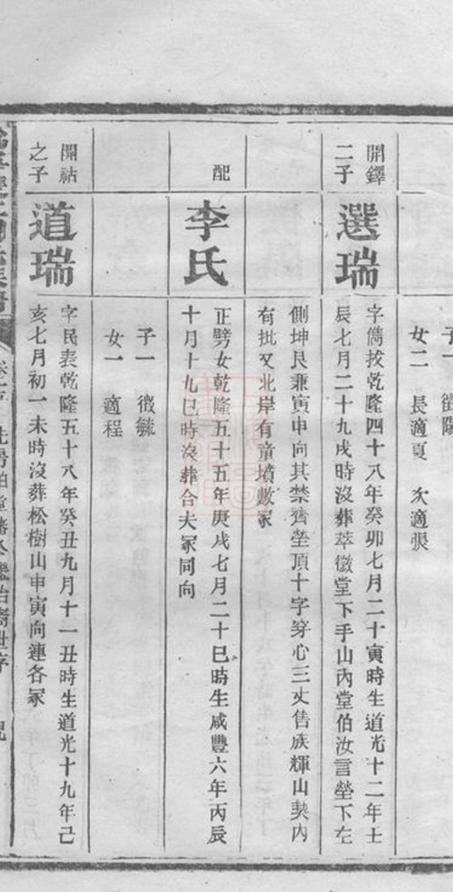 子一
女二 長適夏 次適張
開鐸
二子
選瑞
字儁拔乾隆四十八年癸卯七月二十寅時生道光十二年士
辰七月二十九戌時沒葬萃徽堂下手山內堂伯汝言塋下左
側坤艮兼寅申向其禁齊塋頂十字穿心三丈售族輝山契內
有批又北岸有童墳數冢
配
李氏
正劈女乾隆五十五年庚戌七月二十巳時生咸豐六年丙辰
十月十九巳時沒葬合夫冢同向
子一 徴毓
女一 適程
開祜
之子
道瑞
字民表乾隆五十八年癸丑九月十一丑時生道光十九年己
亥七月初一未時沒葬松樹山申寅向連各冢